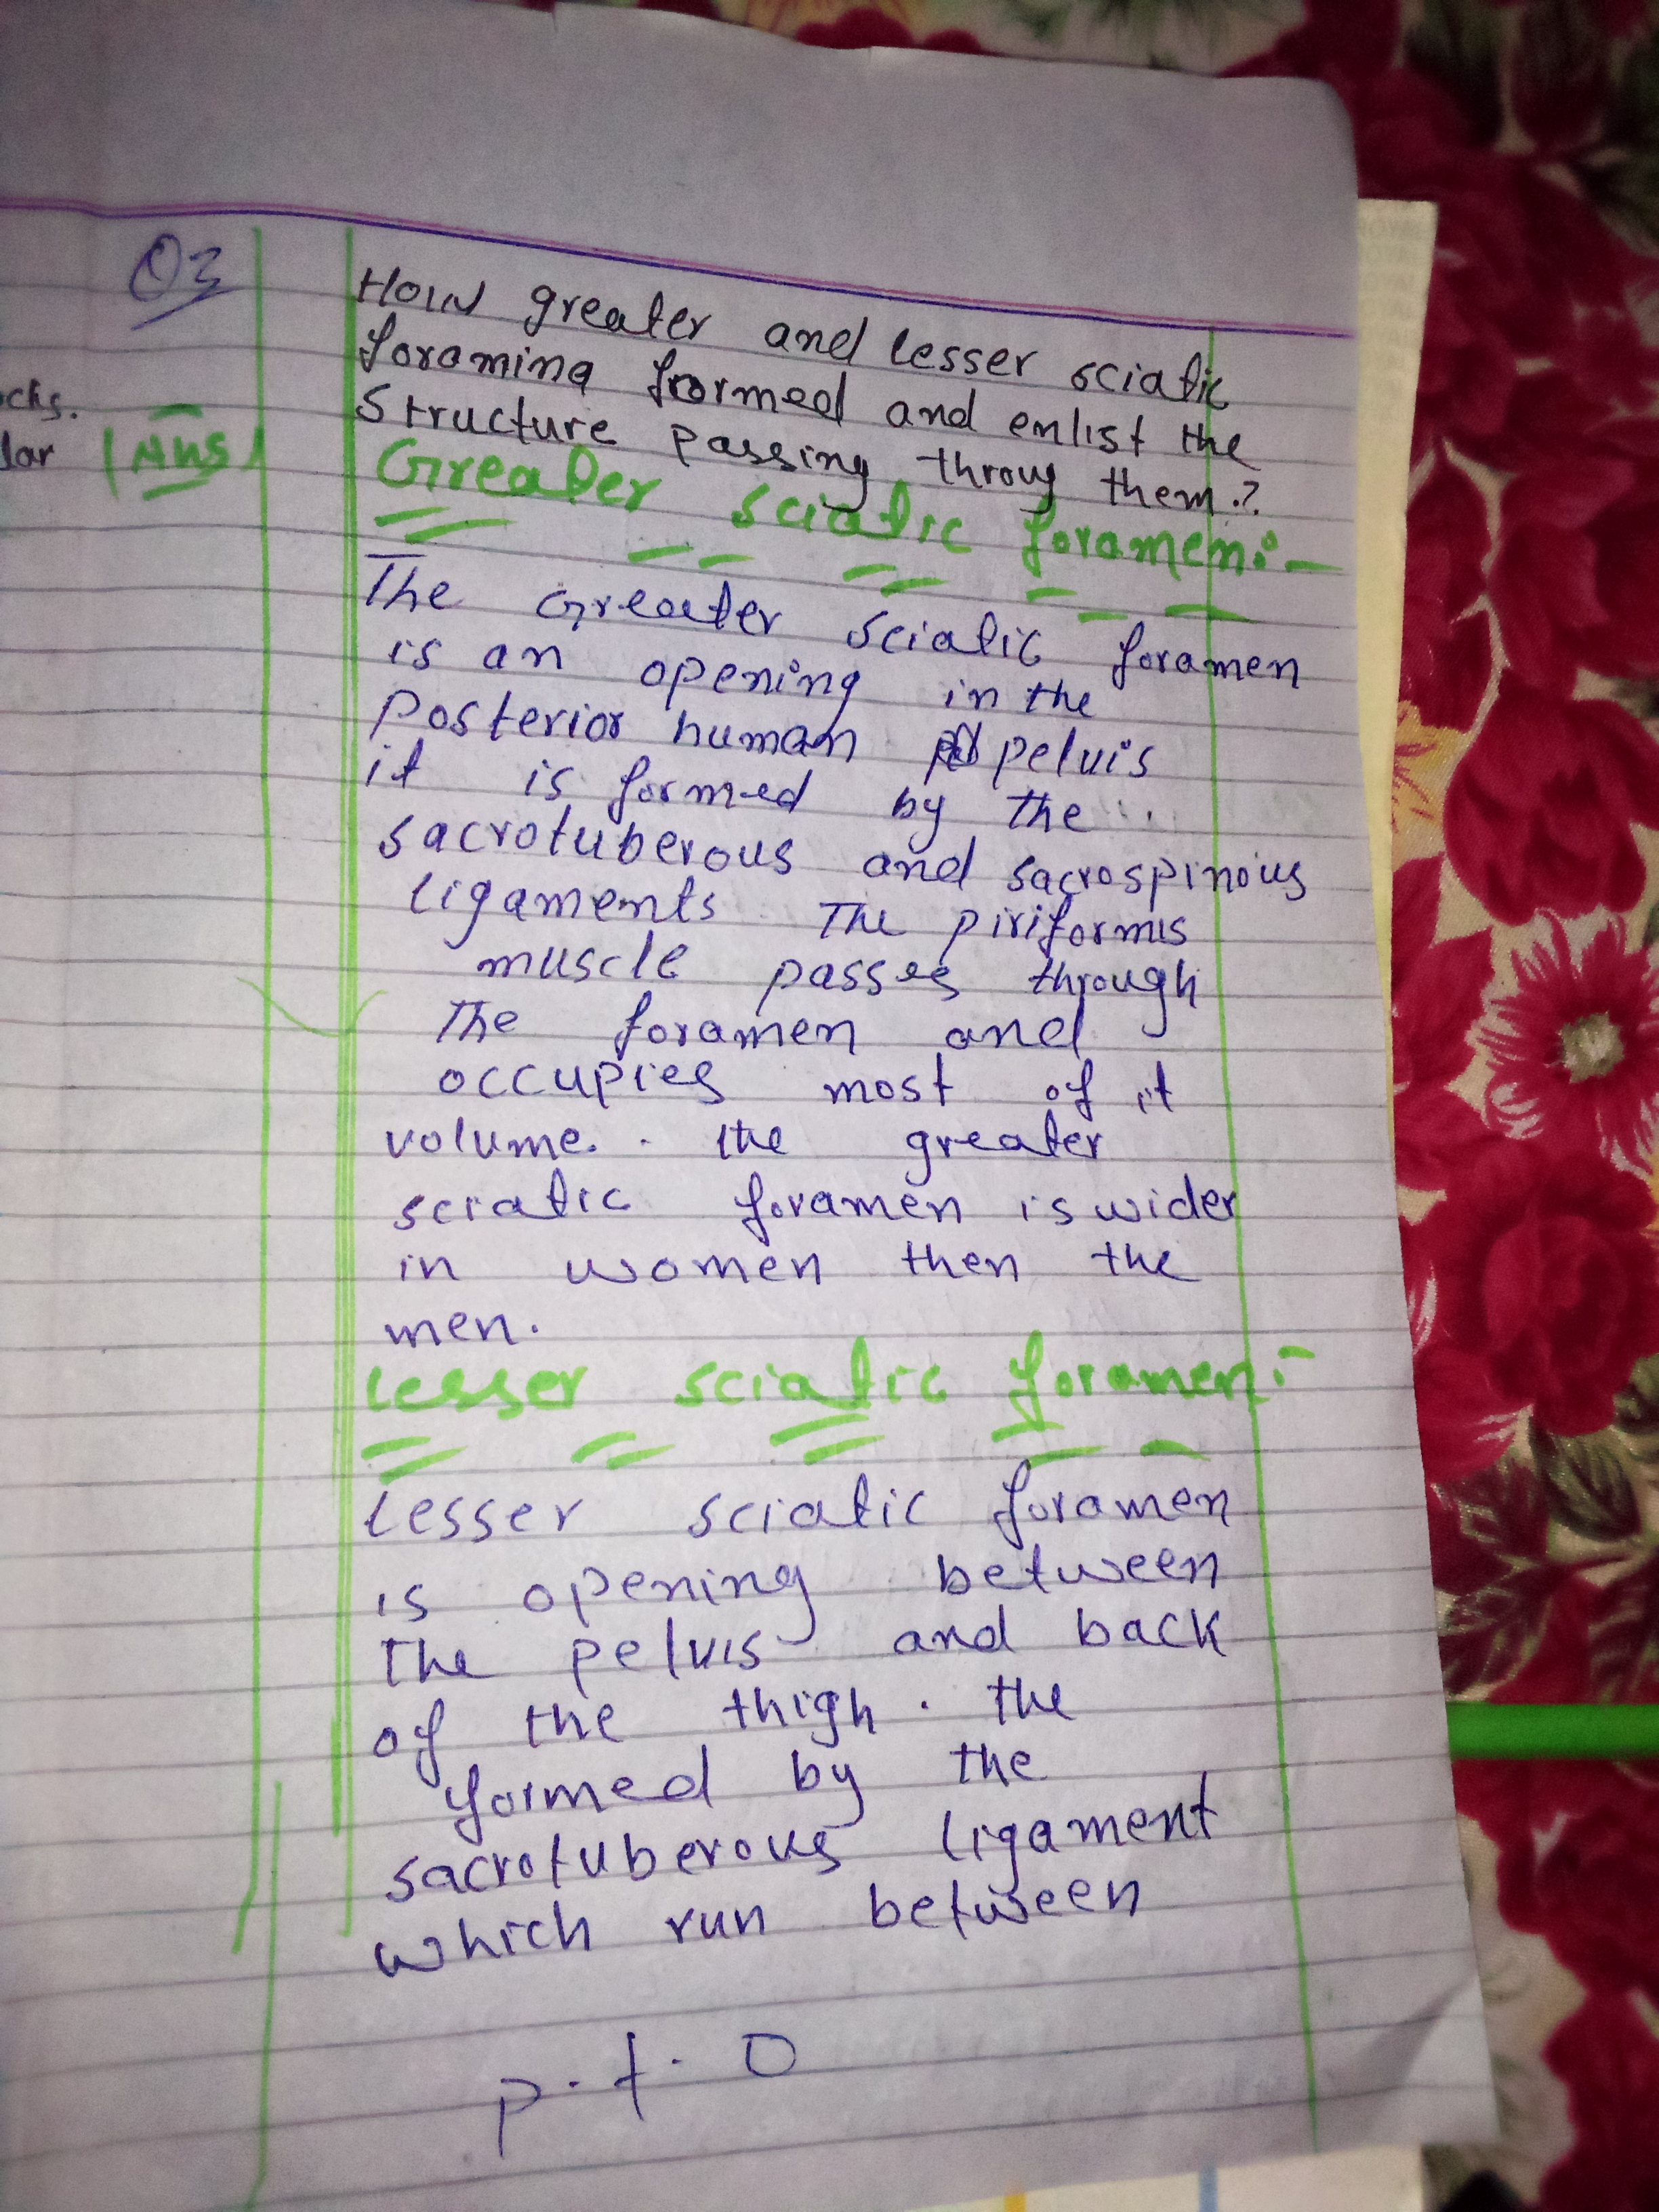 Q3
How greater and lesser sciatic
foramina formed and enlist the
structure passing throug them.?
cks.
lar
Ans
Greater sciatic foramen:-
The Greater sciatic foramen
is an opening in the
posterior human pelvis
it is formed by the
sacrotuberous and sacrospinoius
ligaments The piriformis
muscle passes through
The foramen and
occupies most of it
volume. the greater
sciatic foramen is wider
in women then the
men.
Lesser sciatic foramen:-
Lesser sciatic foramen
is opening between
The pelvis and back
of the thigh. the
formed by the
sacrotuberous ligament
which run between
p.t.o